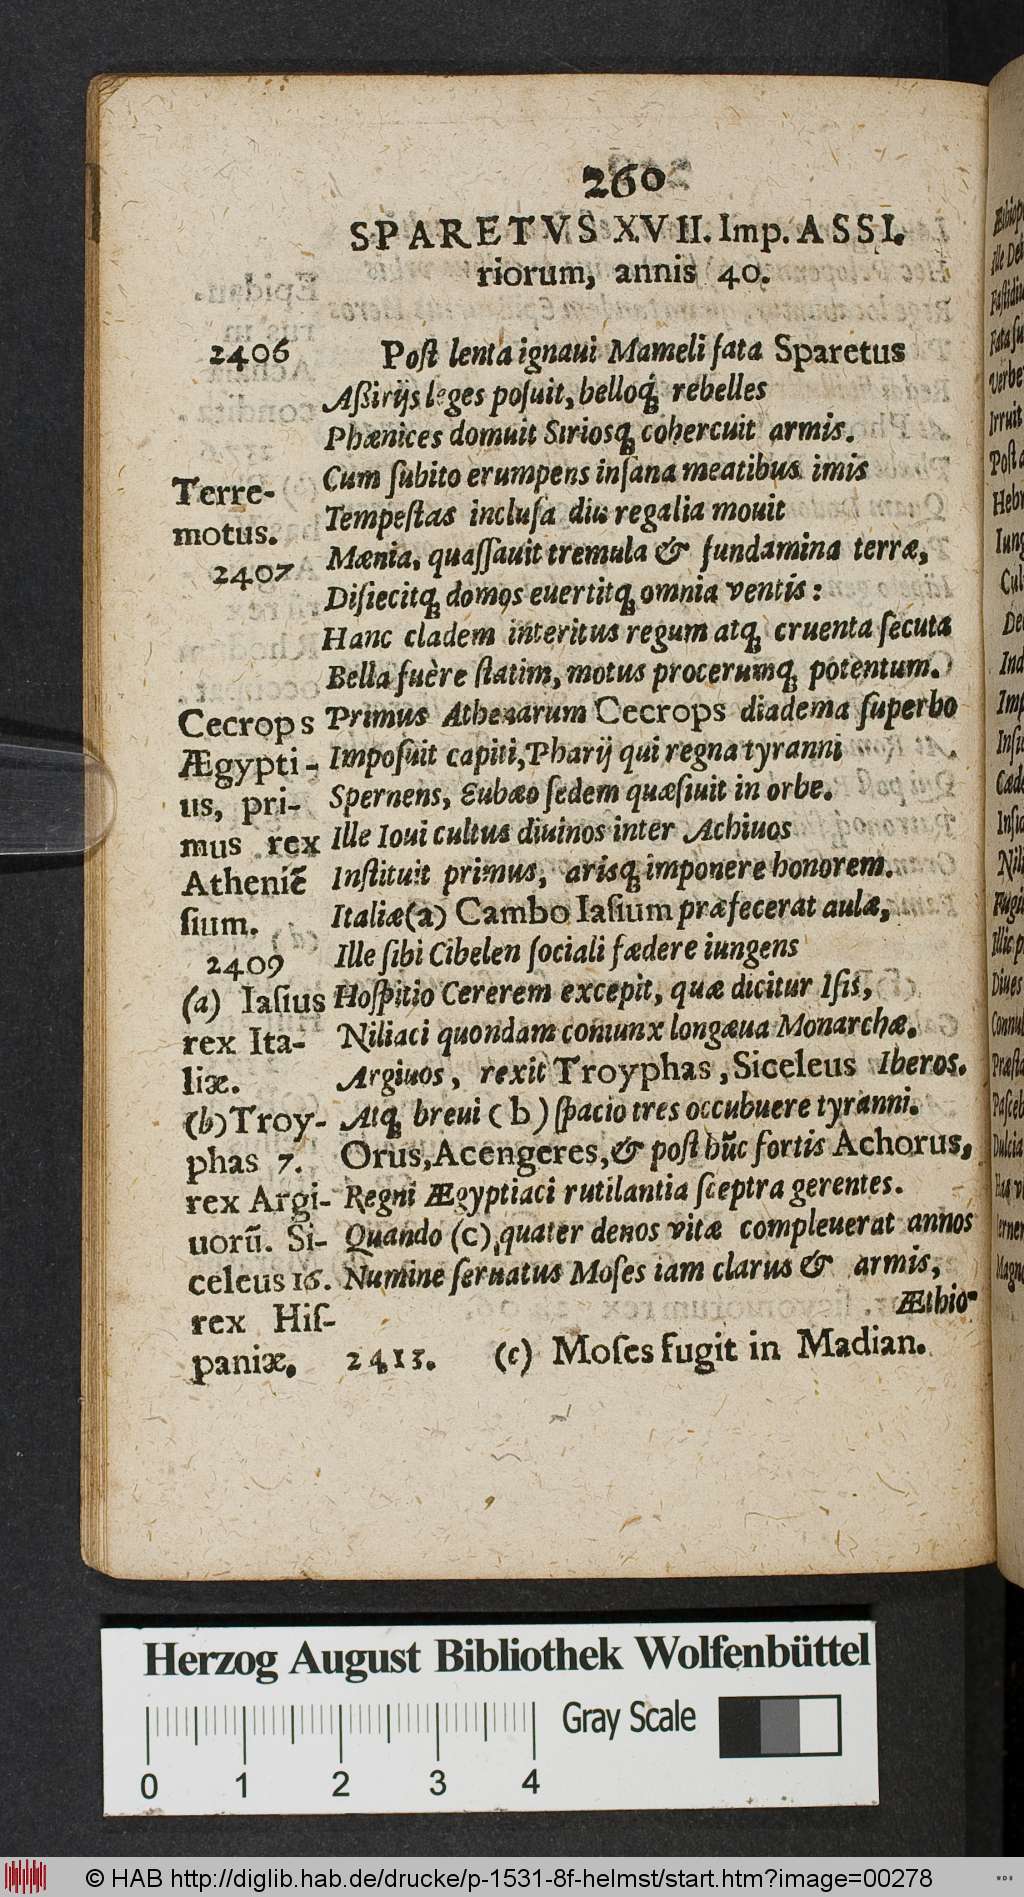 260
SPARETVS XVII. Imp. ASSI.
riorum, annis 40.
2406
Poſt lenta ignaui Mameli fata Sparetus
Aßirijs leges poſuit, belloq́; rebelles
Phœnices domuit Siriosq; cohercuit armis.
Cum ſubito erumpens inſana meatibus imis
Terre-
Tempeſtas incluſa diu regalia mouit
motus.
Mœnia, quaſſauit tremula & fundamina terræ,
2407
Diſiecitq; domos euertitq; omnia ventis:
Hanc cladem interitus regum atq; cruenta ſecuta
Bella fuère ſtatim, motus procerumq; potentum.
Cecrops
Primus Athenarum Cecrops diadema ſuperbo
Ægypti-
Impoſuit capiti, Pharij qui regna tyranni
us, pri-
Spernens, Eubœo ſedem quæſiuit in orbe.
mus rex
Ille Ioui cultus diuinos inter Achiuos
Atheniẽ
Inſtituit primus, arisq; imponere honorem.
ſium.
Italiæ (a) Cambo Iaſium præfecerat aulæ,
2409
Ille ſibi Cibelen ſociali fœdere iungens
(a) Iaſius
Hoſpitio Cererem excepit, quæ dicitur Iſis,
rex Ita-
Niliaci quondam coniunx longæua Monarchæ.
liæ.
Argiuos, rexit Troyphas, Siceleus Iberos.
(b) Troy-
Atq; breui (b) ſpacio tres occubuere tyranni.
phas 7.
Orus, Acengeres, & poſt hũc fortis Achorus,
rex Argi-
Regni Ægyptiaci rutilantia ſceptra gerentes.
uorũ. Si-
Quando (c) quater denos vitæ compleuerat annos
celeus 16.
Numine ſeruatus Moſes iam clarus & armis,
rex Hiſ-
Æthio-
paniæ.
2413. (c) Moſes fugit in Madian.
Herzog August Bibliothek Wolfenbüttel
Gray Scale
0 1 2 3 4
© HAB http://diglib.hab.de/drucke/p-1531-8f-helmst/start.htm?image=00278